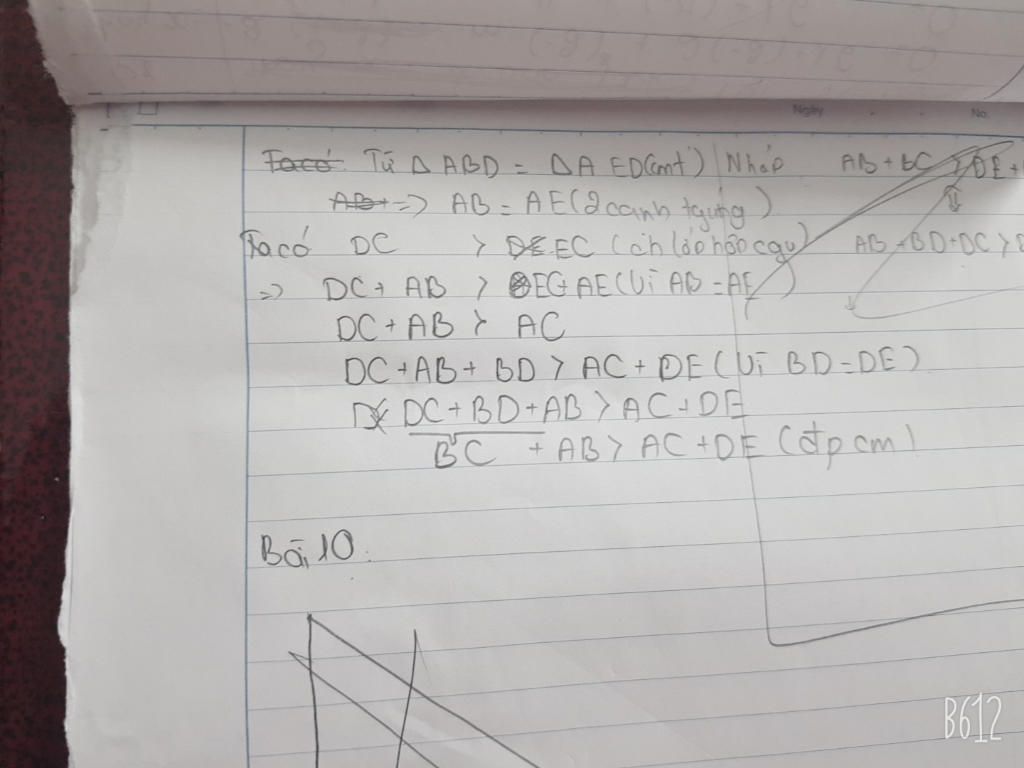 Ngày No.
Ta có Từ Δ ABD = Δ A ED(cmt) Nháp AB + BC > DE +
AB+ => AB = AE(2 cạnh tg ứng)
Ta có DC > DE EC AB + BD+DC >
=> DC + AB > EC+ AE(Vì AB = AE)
DC + AB > AC
DC +AB + BD > AC + DE (Vì BD = DE)
DC + BD + AB > AC + DE
BC + AB > AC + DE (đpcm)
Bài 10.
B612